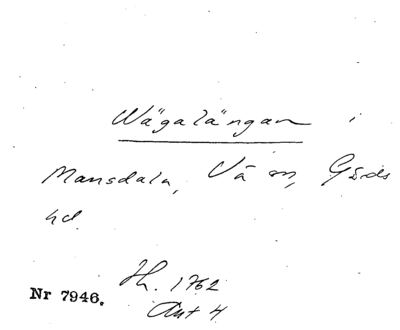 Wägalängan i
Mansdala, Vä sn, Gärds
hd.
Hh. 1762
Akt 4
Nr 7946.